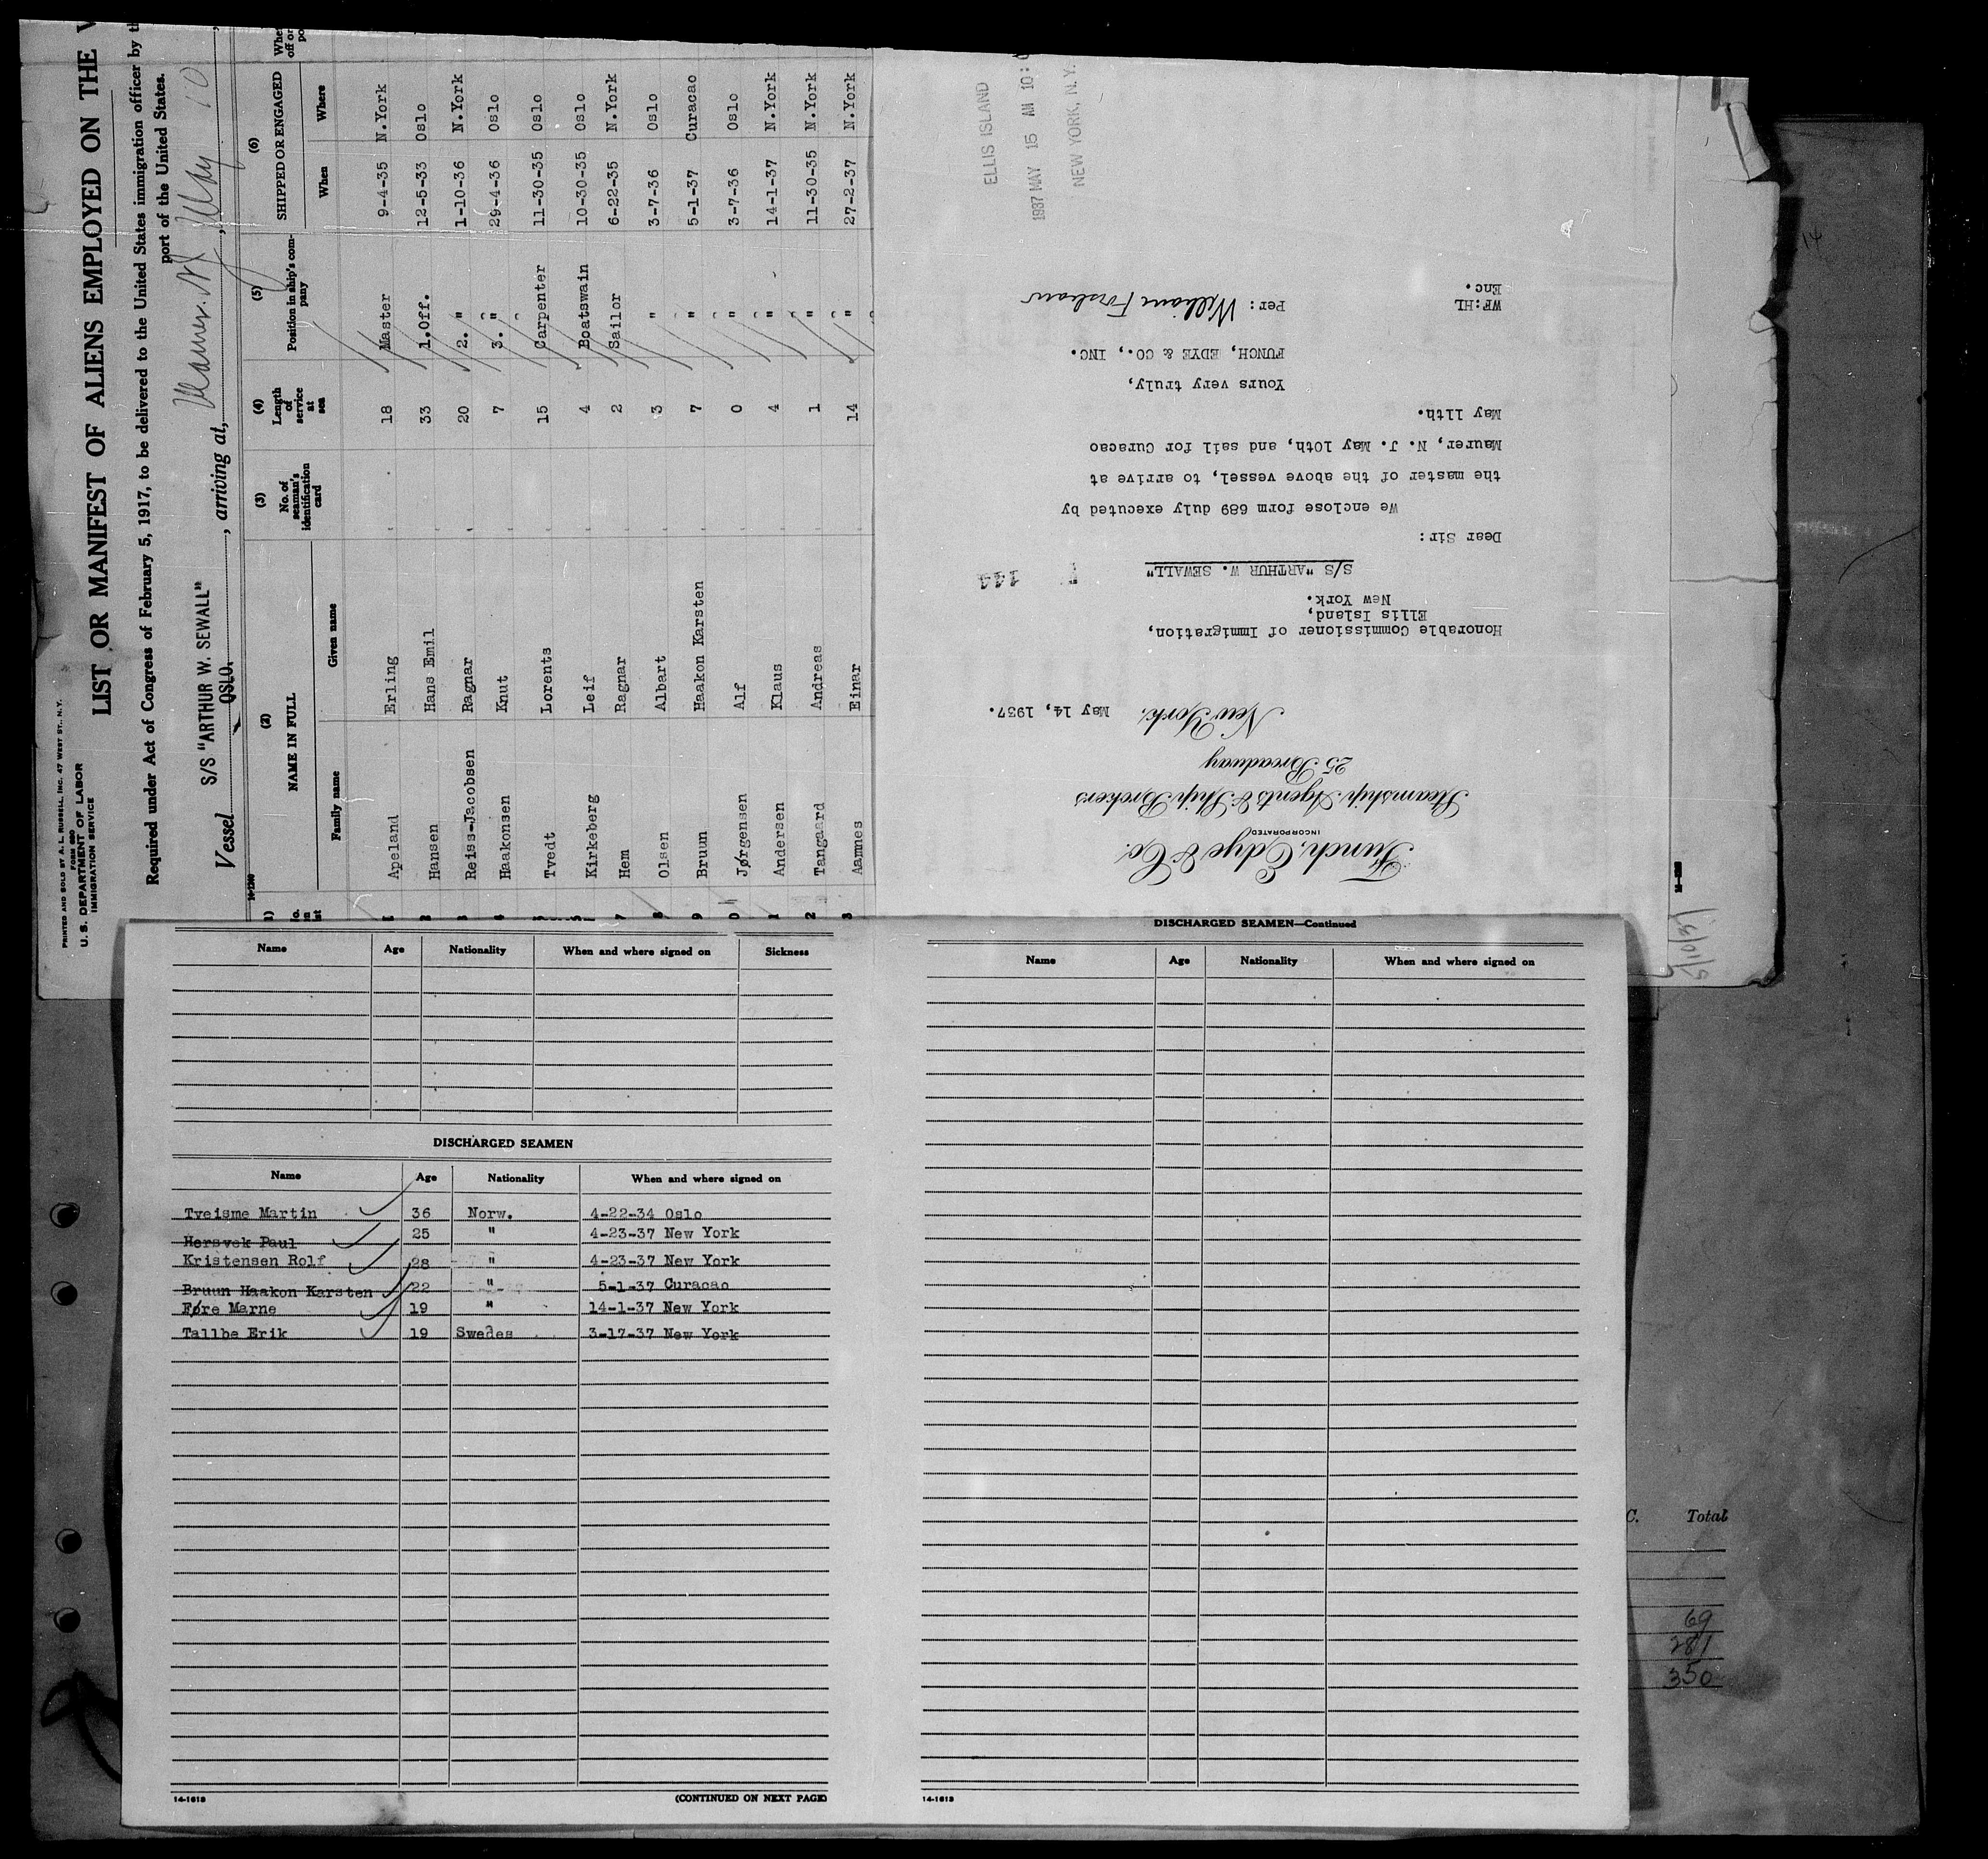 PRINTED AND SOLD BY A. L. RUSSELL, INC. 47 WEST ST., N.Y.
FORM 680
U. S. DEPARTMENT OF LABOR
IMMIGRATION SERVICE
LIST OR MANIFEST OF ALIENS EMPLOYED ON THE V
Required under Act of Congress of February 5, 1917, to be delivered to the United States immigration officer by th
port of the United States.
Vessel S/S "ARTHUR W. SEWALL" OSLO. , arriving at, Maurer. N J , May 10
(2) (3) (4) (5) (6)
NAME IN FULL No. of seaman's identification card Length of service at sea Position in ship's company SHIPPED OR ENGAGED
Family name Given name When Where
1 Apeland Erling 18 Master 9-4-35 N.York
2 Hansen Hans Emil 33 1.Off. 12-5-33 Oslo
3 Reiss-Jacobsen Ragnar 20 2. " 1-10-36 N.York
4 Haakonsen Knut 7 3. " 29-4-36 Oslo
5 Tvedt Lorents 15 Carpenter 11-30-35 Oslo
Kirkeberg Leif 4 Boatswain 10-30-35 Oslo
7 Hem Ragnar 2 Sailor 6-22-35 N.York
8 Olsen Albart 3 " 3-7-36 Oslo
9 Bruun Haakon Karsten 7 " 5-1-37 Curacao
0 Jørgensen Alf 0 " 3-7-36 Oslo
1 Andersen Klaus 4 " 14-1-37 N.York
2 Tangaard Andreas 1 " 11-30-35 N.York
3 Aamnes Einar 14 " 27-2-37 N.York
Funch, Edye & Co.
INCORPORATED
Steamship Agents & Ship Brokers
25 Broadway
New York, May 14, 1937.
Honorable Commissioner of Immigration,
Ellis Island,
New York.
S/S "ARTHUR W. SEWALL" 144
Dear Sir:
We enclose form 689 duly executed by
the master of the above vessel, to arrive at
Maurer, N. J. May 10th, and sail for Curacao
May 11th.
Yours very truly,
FUNCH, EDYE & CO., INC.
Per: William Forsham
WF:HL
Enc.
ELLIS ISLAND
1937 MAY 15 AM 10:
NEW YORK, N. Y.
5/10/37
14
Name Age Nationality When and where signed on Sickness
DISCHARGED SEAMEN
Name Age Nationality When and where signed on
Tveisme Martin 36 Norw. 4-22-34 Oslo
Hersvek Paul 25 " 4-23-37 New York
Kristensen Rolf 28 " 4-23-37 New York
Bruun Haakon Karsten 22 " 5-1-37 Curacao
Føre Marne 19 " 14-1-37 New York
Tallbe Erik 19 Swedes 3-17-37 New York
14-1613 (CONTINUED ON NEXT PAGE)
DISCHARGED SEAMEN—Continued
Name Age Nationality When and where signed on
14-1613
C. Total
69
281
350